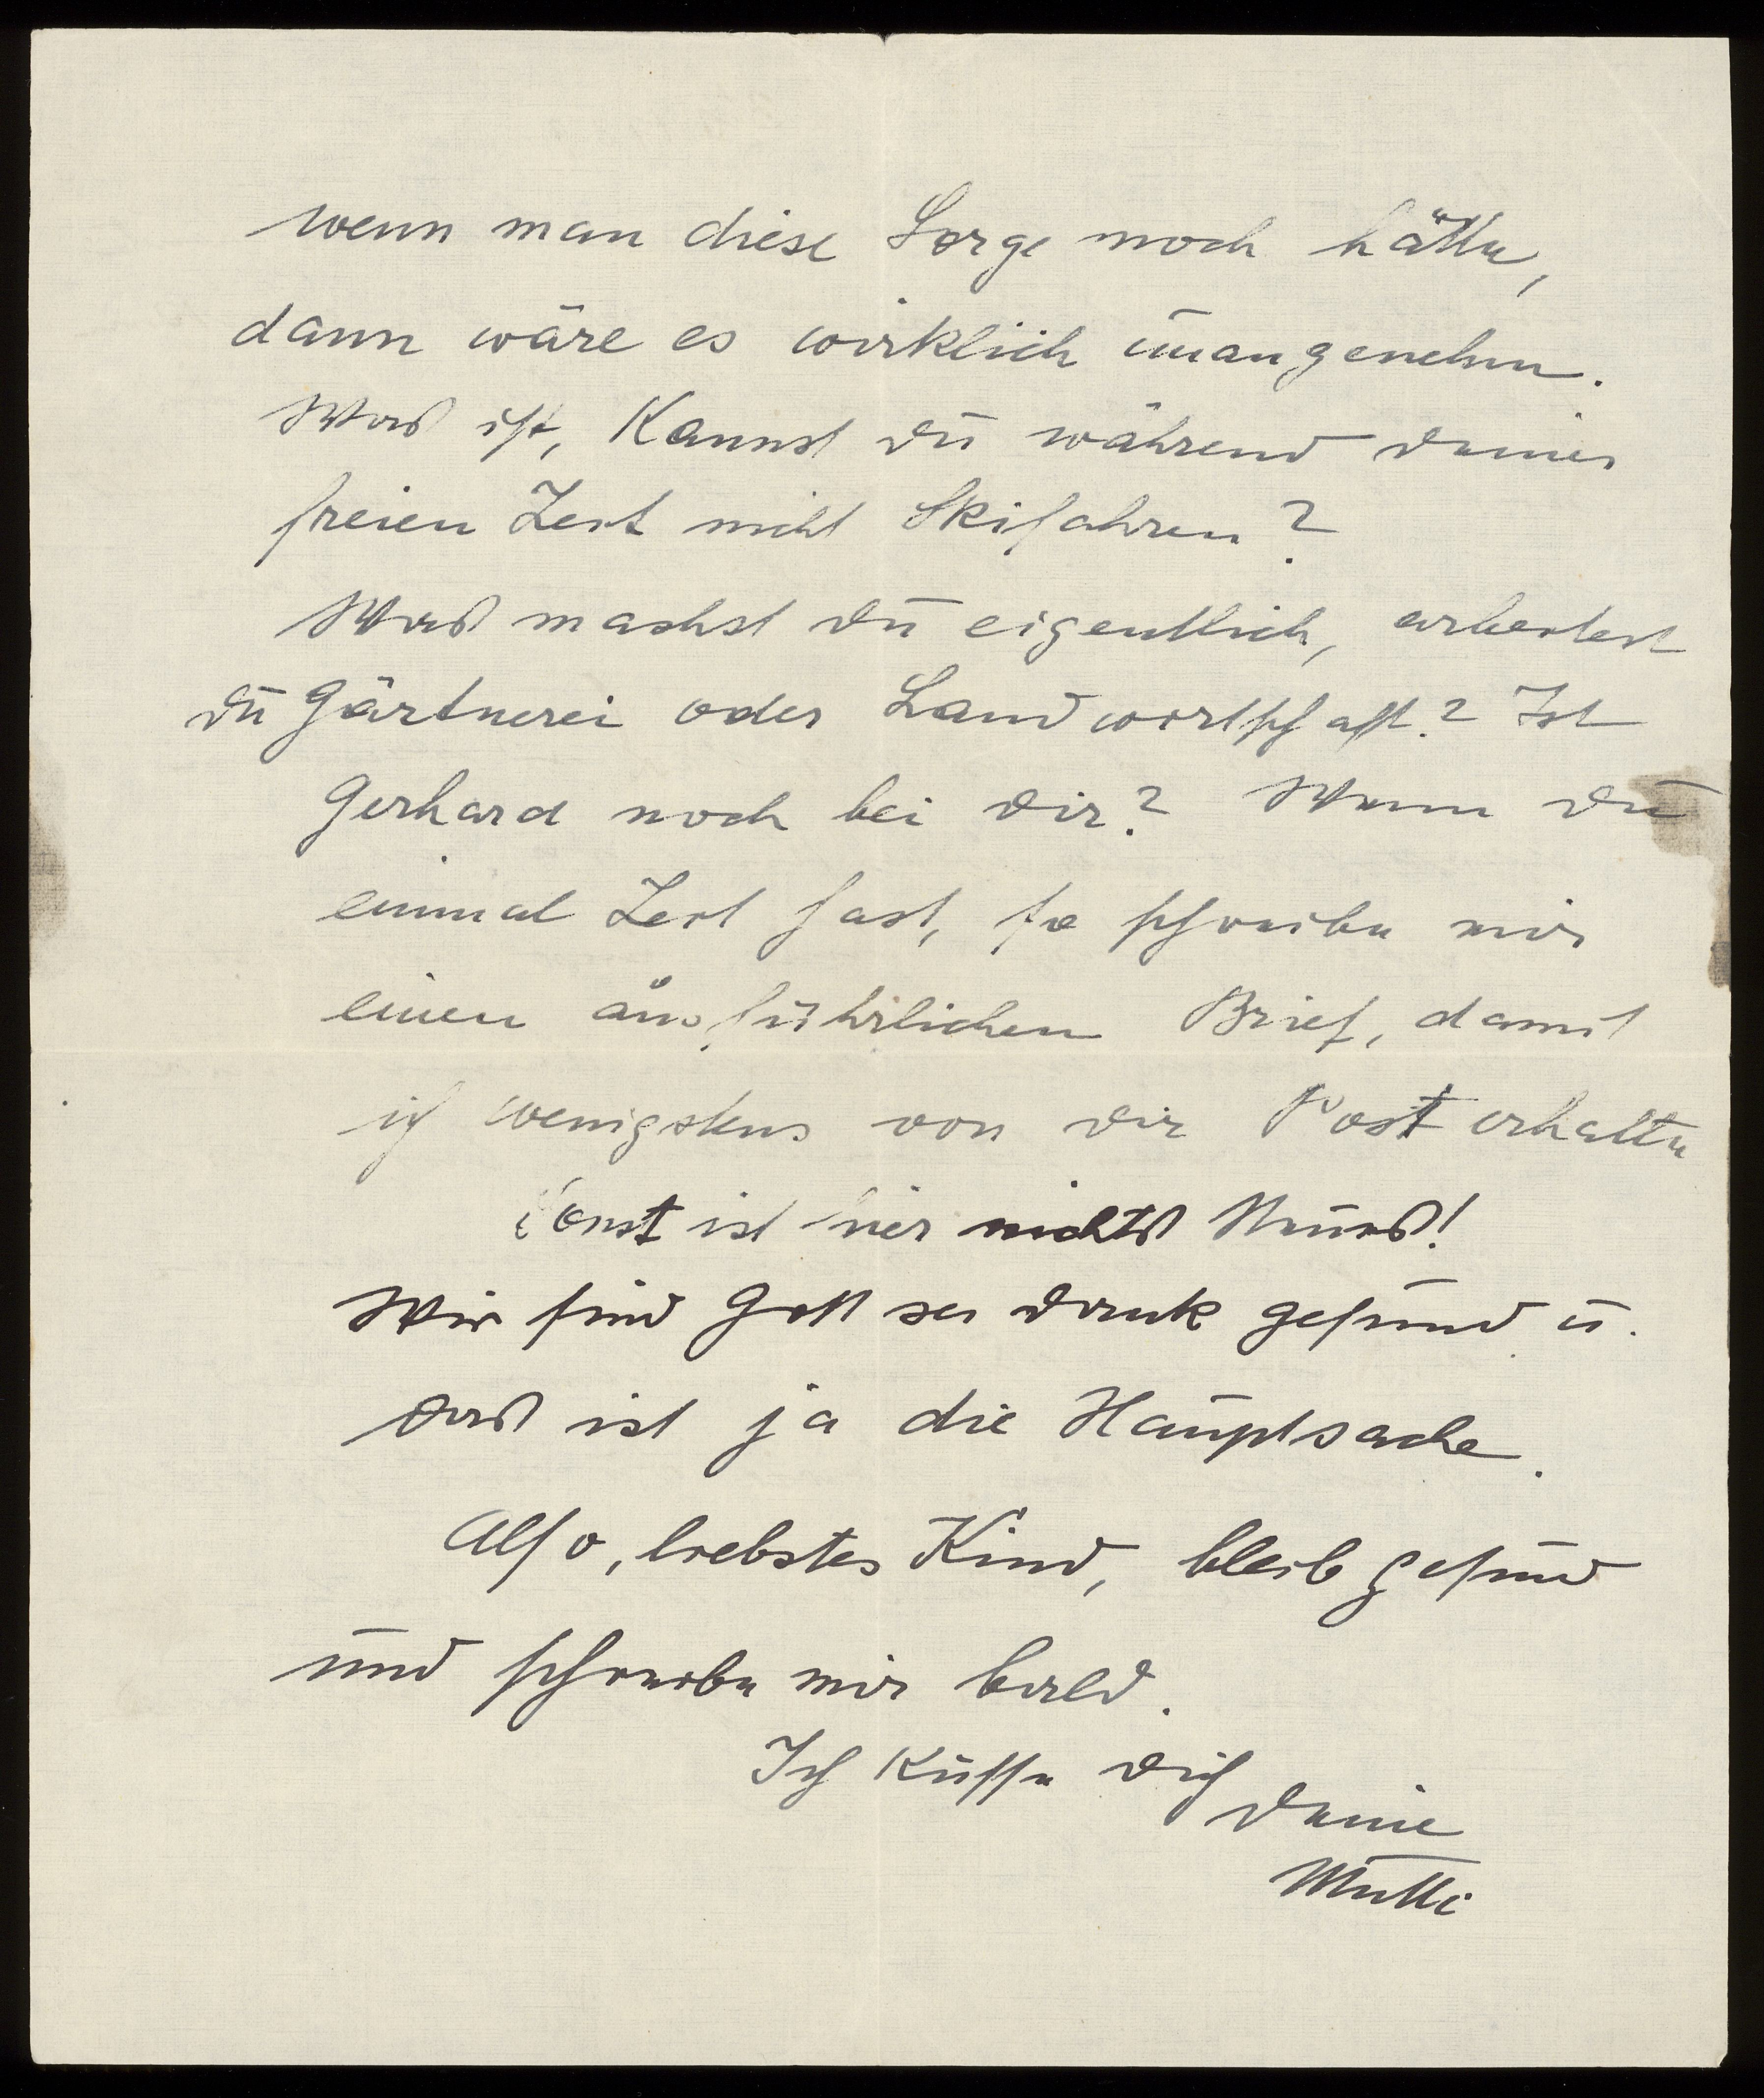 wenn man diese Sorge noch hätte,
dann wäre es wirklich unangenehm.
Was ist, Kannst du während deiner
freien Zeit nicht Skifahren?
Was machst du eigentlich, arbeitest
du Gärtnerei oder Landwirtschaft? Ist
Gerhard noch bei dir? Wenn du
einmal Zeit hast, so schreibe mir
einen ausführlichen Brief, damit
ich wenigstens von dir Post erhalte
Sonst ist hier nichts Neues!
Wir sind Gott sei dank gesund u.
das ist ja die Hauptsache.
Also, liebstes Kind, bleib gesund
und schreibe mir bald.
Ich Küsse dich
deine
Mutti